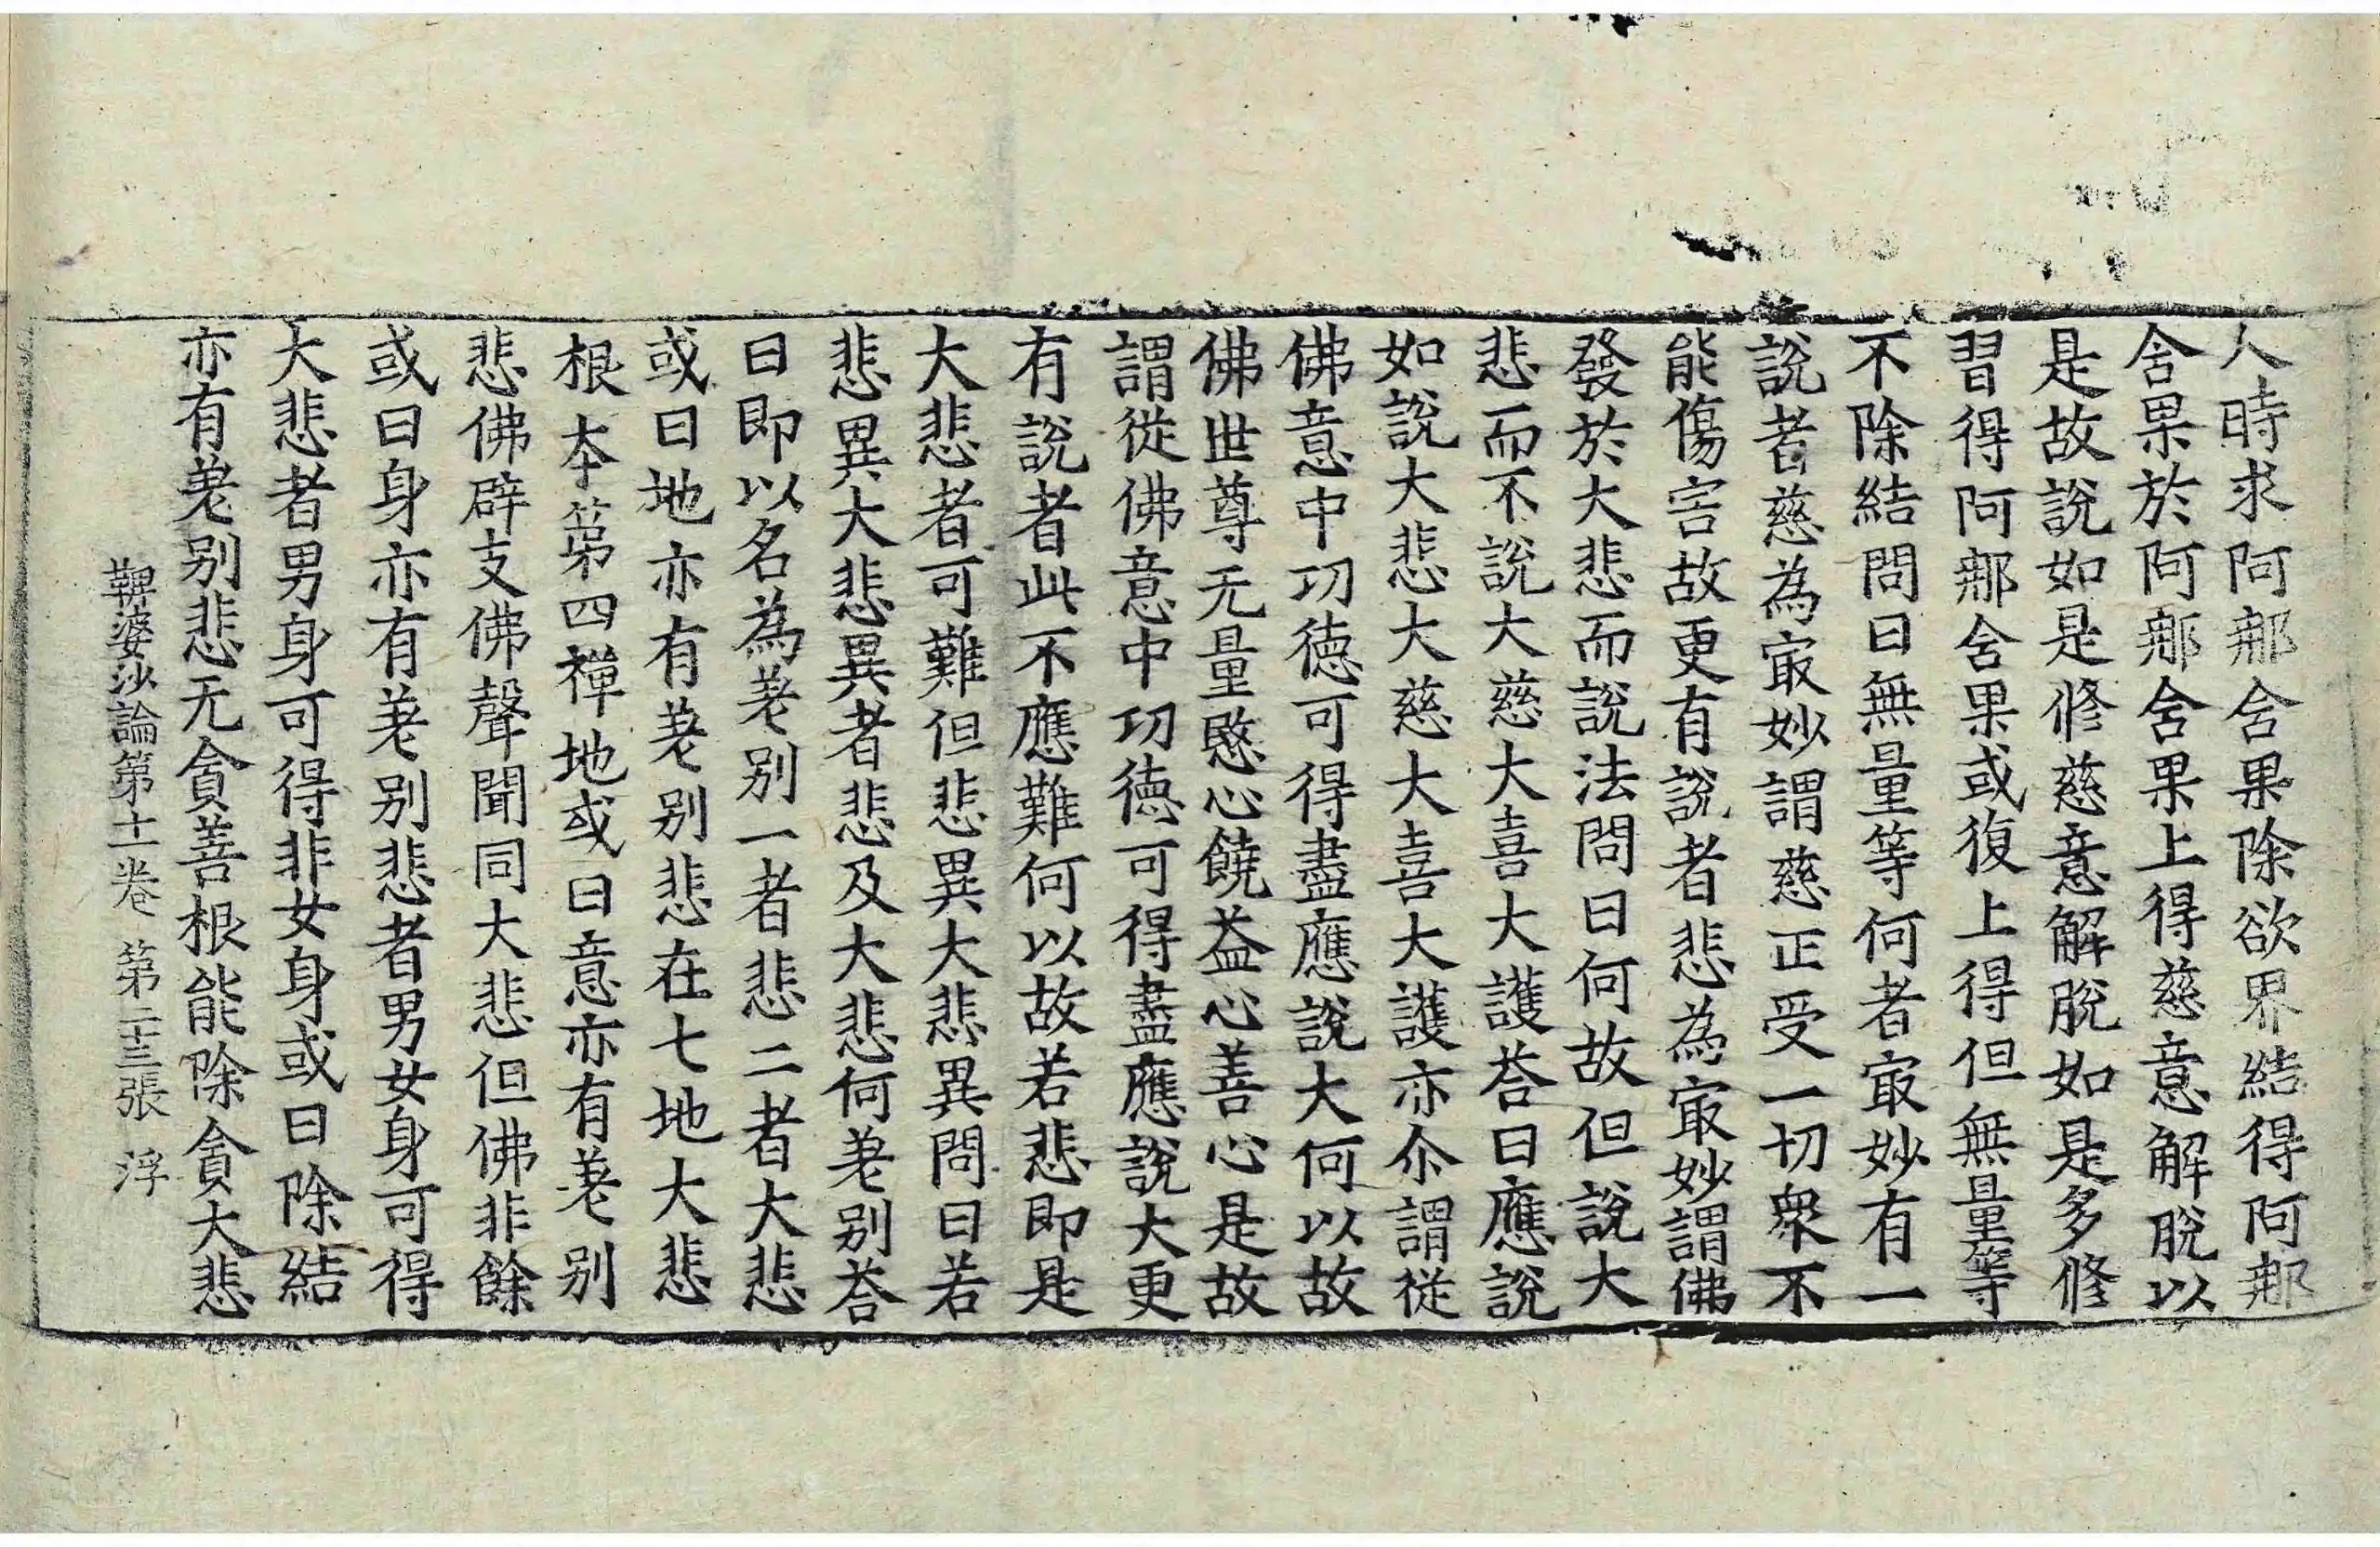 人時求阿那舍果除欲界結得阿那
舍果於阿那舍果上得慈意解脫以
是故說如是修慈意解脫如是多修
習得阿那舍果或復上得但無量等
不除結問曰無量等何者冣妙有一
說者慈為冣妙謂慈正受一切衆不
能傷害故更有說者悲為冣妙謂佛
發於大悲而說法問曰何故但說大
悲而不說大慈大喜大護荅曰應說
如說大悲大慈大喜大護亦尒謂從
佛意中功德可得盡應說大何以故
佛世尊无量愍心饒益心善心是故
謂從佛意中功德可得盡應說大更
有說者此不應難何以故若悲即是
大悲者可難但悲異大悲異問曰若
悲異大悲異者悲及大悲何差别荅
曰即以名為差别一者悲二者大悲
或曰地亦有差别悲在七地大悲
根本第四禪地或曰意亦有差别
悲佛辟支佛聲聞同大悲但佛非餘
或曰身亦有差别悲者男女身可得
大悲者男身可得非女身或曰除結
亦有差别悲无貪善根能除貪大悲
鞞婆沙論第十一卷 第二十三張 浮